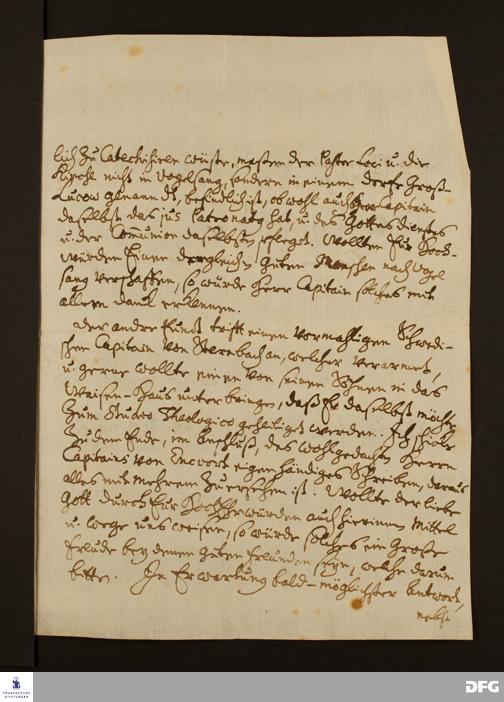 lich zu Catechisiren wüste, maßen der Pastor Loci u. die
Kirche nicht in Vogelsang, sondern in einem dorffe Groß-
Lucow genandt, befindlich ist, obwohl auch Herr Capitain
daselbst das jus Patronatg hat, u. des Gottes dienstes
u. der Communion daselbsten pfleget. Wollten Eur Hoch-
würden einen dergleichen guten Menschen nach Vogel
sang verschaffen, so würde Herr Capitain solches mit
allem danck erkennen.
Der andre Punct trifft einen vormahligen Schwedi-
schen Capitain von Sternbach an, welcher verarmet,
u. gerne wollte einen von seinen Söhnen in das
Waisen-Haus unter bringen, daß Er daselbst möchte
zum Studio Theologico gehalten werden. Ich schicke
zu dem Ende, im Anschluß, des wohlgedachten Herrn
Capitains von eigenhändiges Schreiben, daraus
alles mit mehrem zu ersehen ist. Wollte der liebe
Gott durch Eur HochEhrwürden auch hierinnen Mittel
u. wege uns weisen, so würde solches eine Große
freude bey denen guten freunden seyn, welche darum
bitten. In Erwartung bald-möglichster Antwort,
nebst
FRANCKESCHE
STIFTUNGEN
DFG